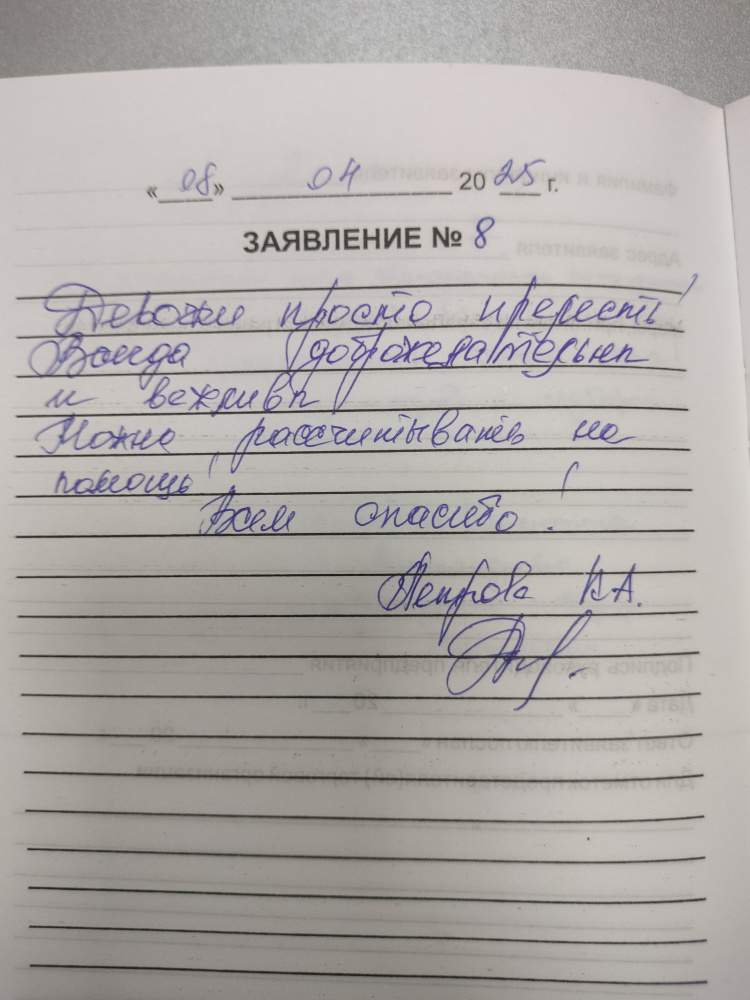 «08» 04 2025 г.
ЗАЯВЛЕНИЕ № 8
Девочки просто прелесть!
Всегда доброжелательны
и вежливы
Можно рассчитывать на
помощь!
Всем спасибо!
Петрова Н.А.